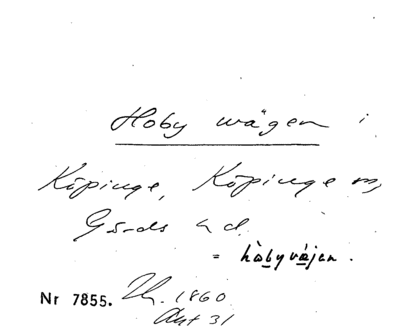 Hoby wägen i
Köpinge, Köpinge sn,
Gärds hd.
= hòbyvä̀jen.
Nr 7855. Lh. 1860
Akt 31